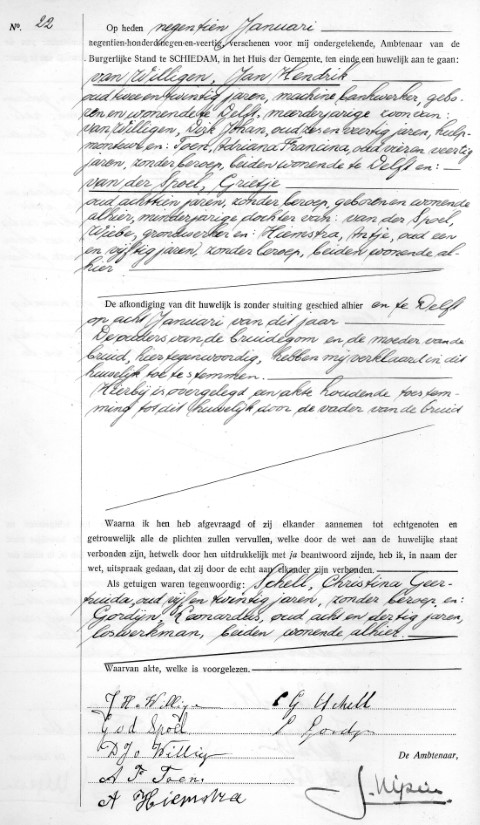 Nº. 22
Op heden negentien Januari
negentien-honderd negen-en-veertig, verschenen voor mij ondergetekende, Ambtenaar van de
Burgerlijke Stand te SCHIEDAM, in het Huis der Gemeente, ten einde een huwelijk aan te gaan:
van Willigen, Jan Hendrik
oud twee en twintig jaren, machine bankwerker, gebo-
ren en wonende te Delft, meerderjarige zoon van:
van Willigen, Dirk Johan, oud zes en veertig jaren, hulp-
monteur en: Toen, Adriana Francina, oud vier en veertig
jaren, zonder beroep, beiden wonende te Delft en:
van der Spoel, Grietje
oud achttien jaren, zonder beroep, geboren en wonende
alhier, minderjarige dochter van: van der Spoel,
Wiebe, grondwerker en: Hiemstra, Antje, oud een
en vijftig jaren, zonder beroep, beiden wonende al-
hier
De afkondiging van dit huwelijk is zonder stuiting geschied alhier en te Delft
op acht Januari van dit jaar
De ouders van de bruidegom en de moeder van de
bruid, hier tegenwoordig, hebben mij verklaard in dit
huwelijk toe te stemmen.
Hierbij is overgelegd een akte houdende toestem-
ming tot dit huwelijk door de vader van de bruid
Waarna ik hen heb afgevraagd of zij elkander aannemen tot echtgenoten en
getrouwelijk alle de plichten zullen vervullen, welke door de wet aan de huwelijke staat
verbonden zijn, hetwelk door hen uitdrukkelijk met ja beantwoord zijnde, heb ik, in naam der
wet, uitspraak gedaan, dat zij door de echt aan elkander zijn verbonden.
Als getuigen waren tegenwoordig: Schell, Christina Geer-
truida, oud vijf en twintig jaren, zonder beroep, en:
Gordijn, Leonardus, oud acht en dertig jaren,
loswerkman, beiden wonende alhier.
Waarvan akte, welke is voorgelezen.
J H v Willige C G Schell
G v d Spoel L Gordijn
D Jo v Willig
De Ambtenaar,
A F Toen.
A Hiemstra